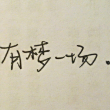 有梦一场.